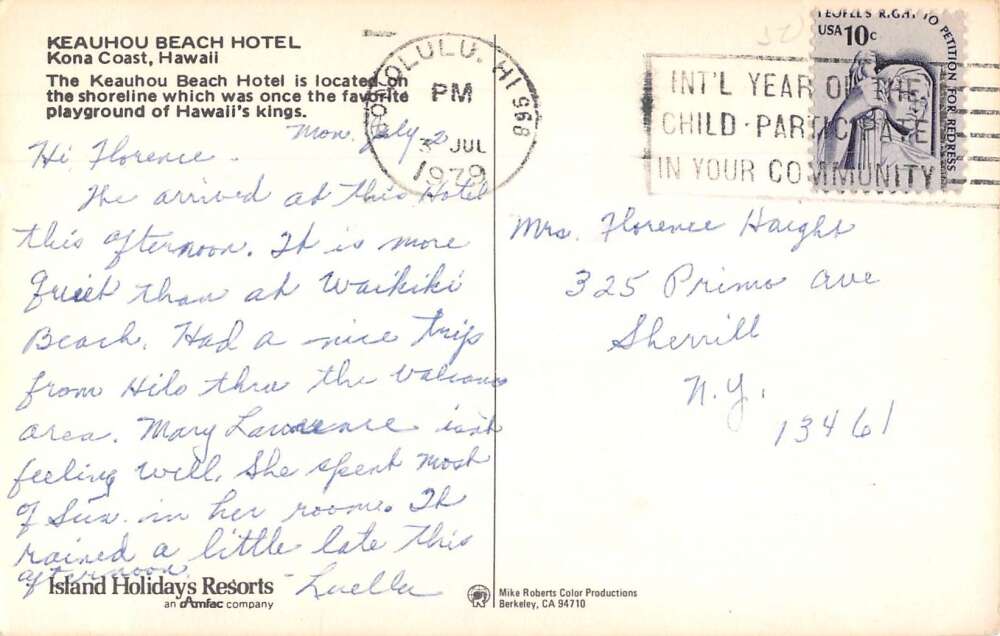 KEAUHOU BEACH HOTEL
Kona Coast, Hawaii
The Keauhou Beach Hotel is located on
the shoreline which was once the favorite
playground of Hawaii's kings.
Mon. July 2
Hi Florence.
We arrived at this Hotel
this afternoon. It is more
quiet than at Waikiki
Beach. Had a nice trip
from Hilo thru the Valcano
area. Mary Lawrence isn't
feeling well. She spent most
of Sun. in her room. It
rained a little late this
afternoon.
- Luella
Island Holidays Resorts
an Amfac company
HONOLULU, HI 968
PM
3 JUL
1979
INT'L YEAR OF THE
CHILD · PARTICIPATE
IN YOUR COMMUNITY
PEOPLE'S RIGHT TO PETITION FOR REDRESS
USA 10c
Mrs. Florence Haight
325 Primo Ave
Sherrill
N.Y.
13461
Mike Roberts Color Productions
Berkeley, CA 94710